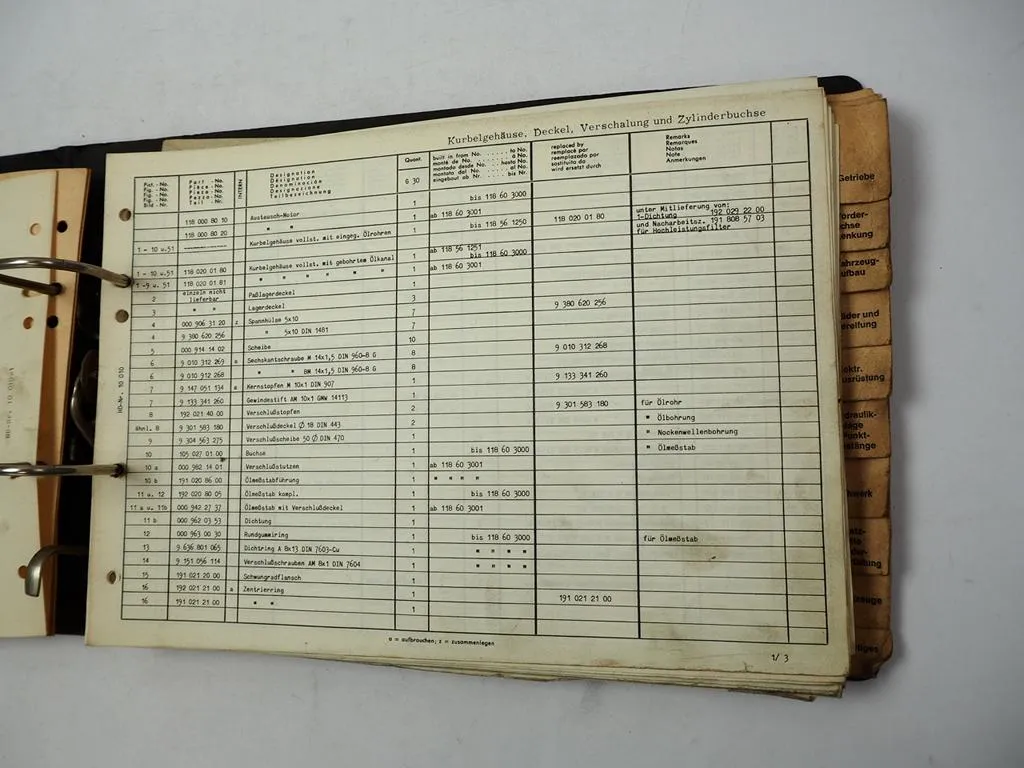 Kurbelgehäuse, Deckel, Verschalung und Zylinderbuchse
Pict.-No. Part-No. INTERN Designation Quant. built in from No. to No. replaced by Remarks
Fig.-No. Pièce-No. Désignation monté de No. à No. remplacé par Remarques
Fig.-No. Pieza-No. Denominación G 30 montado desde No. hasta No. reemplazado por Notas
Fig.-No. Pezzo-No. Designazione montato dal No. al No. sostituito da Note
Bild-Nr. Teil-Nr. Teilbezeichnung eingebaut ab Nr. bis Nr. wird ersetzt durch Anmerkungen
118 000 80 10 Austausch-Motor 1 bis 118 60 3000
118 000 80 20 " " 1 ab 118 60 3001
1 - 10 u.51 Kurbelgehäuse vollst. mit eingeg. Ölrohren 1 bis 118 56 1250 118 020 01 80 unter Mitlieferung von:
1-Dichtung 192 029 22 00
und Nacharbeitsz. 191 808 57 03
für Hochleistungsfilter
1 - 10 u.51 118 020 01 80 Kurbelgehäuse vollst. mit gebohrtem Ölkanal 1 ab 118 56 1251
bis 118 60 3000
1 -9 u. 51 118 020 01 81 " " " " " 1 ab 118 60 3001
2 einzeln nicht lieferbar Paßlagerdeckel 1
3 " " Lagerdeckel 3
4 000 906 31 20 z Spannhülse 5x10 7 9 380 620 256
4 9 380 620 256 " 5x10 DIN 1481 7
5 000 914 14 02 Scheibe 10
6 9 010 312 269 a Sechskantschraube M 14x1,5 DIN 960-8 G 8 9 010 312 268
6 9 010 912 268 " BM 14x1,5 DIN 960-8 G 8
7 9 147 051 134 a Kernstopfen M 10x1 DIN 907 1 9 133 341 260
7 9 133 341 260 Gewindestift AM 10x1 GMW 14113 1
8 192 021 40 00 Verschlußstopfen 2 9 301 583 180 für Ölrohr
ähnl. 8 9 301 583 180 Verschlußdeckel Ø 18 DIN 443 2 " Ölbohrung
9 9 304 563 275 Verschlußscheibe 50 Ø DIN 470 1 " Nockenwellenbohrung
10 105 027 01 00 Buchse 1 bis 118 60 3000 " Ölmeßstab
10 a 000 982 14 01 Verschlußstutzen 1 ab 118 60 3001
10 b 191 020 86 00 Ölmeßstabführung 1 " " " "
11 u. 12 192 020 80 05 Ölmeßstab kompl. 1 bis 118 60 3000
11 a u. 11b 000 942 27 37 Ölmeßstab mit Verschlußdeckel 1 ab 118 60 3001
11 b 000 962 03 53 Dichtung 1
12 000 963 00 30 Rundgummiring 1 bis 118 60 3000 für Ölmeßstab
13 9 636 801 065 Dichtring A 8x13 DIN 7603-Cu 1 " " " "
14 9 151 056 114 Verschlußschrauben AM 8x1 DIN 7604 1 " " " "
15 191 021 20 00 Schwungradflansch 1
16 192 021 21 00 a Zentrierring 1 191 021 21 00
16 191 021 21 00 " " 1
a = aufbrauchen; z = zusammenlegen
1/ 3
HD-Nr. 10 010
Getriebe
chse
enkung
ahrzeug-
ufbau
äder und
ereifung
ektr.
usrüstung
draulik-
lage
Punkt-
stänge